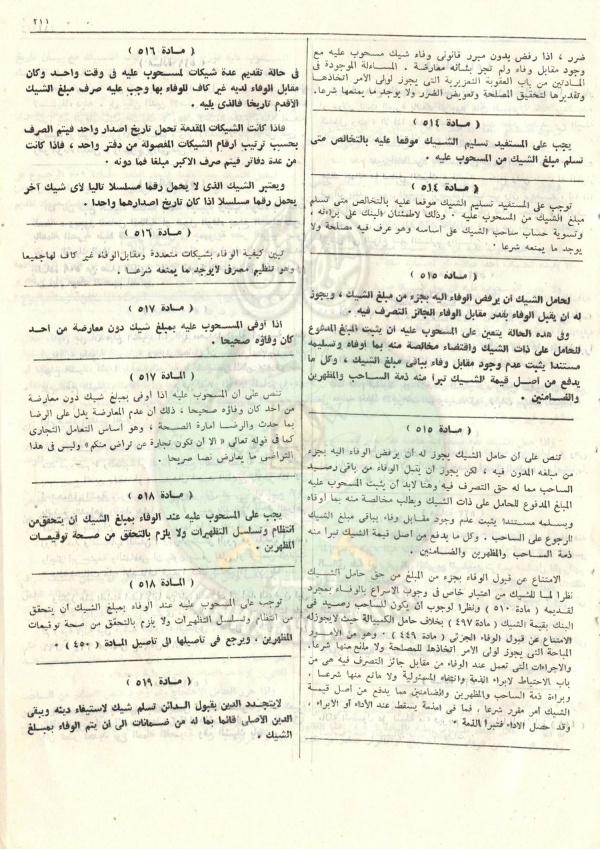 ٢١١
ضرر ، اذا رفض بدون مبرر قانونى وفاء شيك مسحوب عليه مع
وجود مقابل وفاء ولم تجر بشأنه معارضة . المساءلة الموجودة فى
المادتين من باب العقوبة التعزيرية التى يجوز لولى الأمر اتخاذها
وتقديرها لتحقيق المصلحة وتعويض الضرر ولا يوجد ما يمنعها شرعا.
( مادة ٥١٤ )
يجب على المستفيد تسليم الشيك موقعا عليه بالتخالص متى
تسلم مبلغ الشيك من المسحوب عليه .
( مادة ٥١٤ )
توجب على المستفيد تسليم الشيك موقعا عليه بالتخالص متى تسلم
مبلغ الشيك من المسحوب عليه . وذلك لاطمئنان البنك على براءته ،
وتسوية حساب صاحب الشيك على أساسه وهو عرف فيه مصلحة ولا
يوجد ما يمنعه شرعا .
( مادة ٥١٥ )
لحامل الشيك أن يرفض الوفاء اليه بجزء من مبلغ الشيك ، ويجوز
له أن يقبل الوفاء بقدر مقابل الوفاء الجائز التصرف فيه .
وفى هذه الحالة يتعين على المسحوب عليه ان يثبت المبلغ المدفوع
للحامل على ذات الشيك واقتضاء مخالصة منه بما اوفاه وتسليمه
مستندا يثبت عدم وجود مقابل وفاء بباقى مبلغ الشيك ، وكل ما
يدفع من اصل قيمة الشيك تبرأ منه ذمة الساحب والمظهرين
والضامنين .
( مادة ٥١٥ )
تنص على أن حامل الشيك يجوز له أن يرفض الوفاء اليه بجزء
من مبلغه المدون فيه ، لكن يجوز أن يقبل الوفاء من باقى رصيد
الساحب مما له حق التصرف فيه وهنا لابد أن يثبت المسحوب عليه
المبلغ المدفوع للحامل على ذات الشيك ويطلب مخالصة منه بما اوفاه
ويسلمه مستندا يثبت عدم وجود مقابل وفاء بباقى مبلغ الشيك
الرجوع على الساحب . وكل ما يدفع من أصل قيمة الشيك تبرأ منه
ذمة الساحب والمظهرين والضامنين .
الامتناع عن قبول الوفاء بجزء من المبلغ من حق حامل الشيك
نظرا لما للشيك من اعتبار خاص فى وجوب الاسراع بالوفاء بمجرد
تقديمه ( مادة ٥١٠ ) ونظرا لوجوب أن يكون للساحب رصيد فى
البنك بقيمة الشيك ( مادة ٤٩٧ ) بخلاف حامل الكمبيالة حيث لايجوز له
الامتناع عن قبول الوفاء الجزئى ( مادة ٤٤٩ ) . وهو من الأمور
المباحة التى يجوز لولى الأمر اتخاذها للمصلحة ولا مانع منها شرعا.
والاجراءات التى تعمل عند الوفاء من مقابل جائز التصرف فيه هى من
باب الاحتياط لابراء الذمة وانتفاء المسئولية ولا مانع منها شرعا ،
وبراءة ذمة الساحب والمظهرين والضامنين مما يدفع من أصل قيمة
الشيك أمر مقرر شرعا ، فما فى الذمة يسقط عند الأداء أو الابراء ،
وقد حصل الاداء فتبرأ الذمة .
( مادة ٥١٦ )
فى حالة تقديم عدة شيكات لمسحوب عليه فى وقت واحد وكان
مقابل الوفاء لديه غير كاف للوفاء بها وجب عليه صرف مبلغ الشيك
الأقدم تاريخا فالذى يليه .
فاذا كانت الشيكات المقدمة تحمل تاريخ اصدار واحد فيتم الصرف
بحسب ترتيب ارقام الشيكات المفصولة من دفتر واحد ، فاذا كانت
من عدة دفاتر فيتم صرف الاكبر مبلغا فما دونه .
ويعتبر الشيك الذى لا يحمل رقما مسلسلا تاليا لأى شيك آخر
يحمل رقما مسلسلا اذا كان تاريخ اصدارهما واحدا .
( مادة ٥١٦ )
تبين كيفية الوفاء بشيكات متعددة ومقابل الوفاء غير كاف لها جميعا
وهو تنظيم مصرفى لايوجد ما يمنعه شرعا .
( مادة ٥١٧ )
اذا أوفى المسحوب عليه بمبلغ شيك دون معارضة من احد
كان وفاؤه صحيحا .
( المادة ٥١٧ )
تنص على ان المسحوب عليه اذا اوفى بمبلغ شيك دون معارضة
من أحد كان وفاؤه صحيحا ، ذلك أن عدم المعارضة يدل على الرضا
بما حدث والرضا امارة الصحة ، وهو أساس التعامل التجارى
كما فى قوله تعالى « الا ان تكون تجارة عن تراض منكم» وليس فى هذا
التراضى ما يعارض نصا صريحا .
( مادة ٥١٨ )
يجب على المسحوب عليه عند الوفاء بمبلغ الشيك ان يتحقق من
انتظام وتسلسل التظهيرات ولا يلزم بالتحقق من صحة توقيعات
المظهرين .
( المادة ٥١٨ )
توجب على المسحوب عليه عند الوفاء بمبلغ الشيك ان يتحقق
من انتظام وتسلسل التظهيرات ولا يلزم بالتحقق من صحة توقيعات
المظهرين . ويرجع فى تأصيلها الى تأصيل المادة ( ٤٥٠ ) .
( مادة ٥١٩ )
لايتجدد الدين بقبول الدائن تسلم شيك لاستيفاء دينه ويبقى
الدين الأصلى قائما بما له من ضمانات الى أن يتم الوفاء بمبلغ
الشيك .